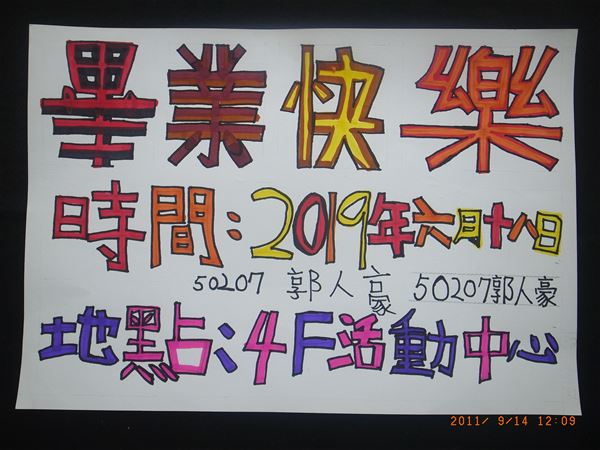 畢業快樂
時間：2019年六月十八日
50207 郭人豪 50207郭人豪
地點：4F活動中心
2011/ 9/14 12:09